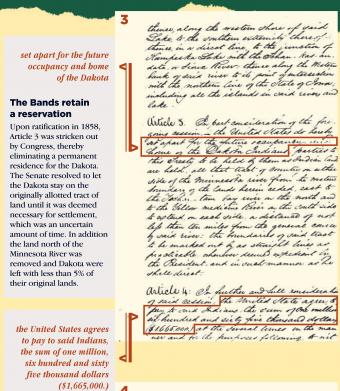 3
set apart for the future
occupancy and home
of the Dakota
The Bands retain
a reservation
Upon ratification in 1858,
Article 3 was stricken out
by Congress, thereby
eliminating a permanent
residence for the Dakota.
The Senate resolved to let
the Dakota stay on the
originally allotted tract of
land until it was deemed
necessary for settlement,
which was an uncertain
amount of time. In addition
the land north of the
Minnesota River was
removed and Dakota were
left with less than 5% of
their original lands.
the United States agrees
to pay to said Indians,
the sum of one million,
six hundred and sixty
five thousand dollars
($1,665,000.)
thence, along the western shore of said
Lake, to the southern extremity thereof:
thence in a direct line, to the junction of
Kampeska Lake with the
Sioux River; thence along the Western
bank of said river to its point of intersection
with the northern line of the State of Iowa;
including all the islands in said rivers and
lake.
Article 3. In part consideration of the fore-
going cession, the United States do hereby
set apart for the future occupancy and
home of the Dakota Indians, parties to
this Treaty to be held by them as Indian lands
are held, all that tract of country on either
side of the Minnesota river from the western
boundary of the lands herein ceded, east to
the river on the north and
to the Yellow Medicine river on the south side
to extend on each side, a distance of not
less than ten miles from the general course
of said river: the boundaries of said tract
to be marked out by as straight lines as
practicable, whenever deemed expedient by
the President, and in such manner as he
shall direct.
Article 4. In further and full consideration
of said cession, the United States agree to
pay to said Indians, the sum of One million
six hundred and sixty five thousand dollars
($1,665,000.) at the several times, in the man-
ner and for the purposes following, to wit